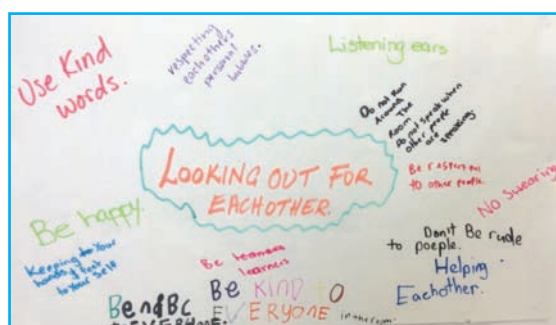 Use Kind
words.
respecting
eachothers
personal
bubbles.
Listening ears
Do not Run
Around
The
Room
Do not speak when
other people
are
speaking.
LOOKING OUT FOR
EACHOTHER.
Be respectful
to other people.
No swearing
Be happy.
Keeping to Your
hands
to Your self
Don't Be rude
to poeple.
Helping
Eachother.
Be
learners
BE KIND TO
EVERYONE in the room